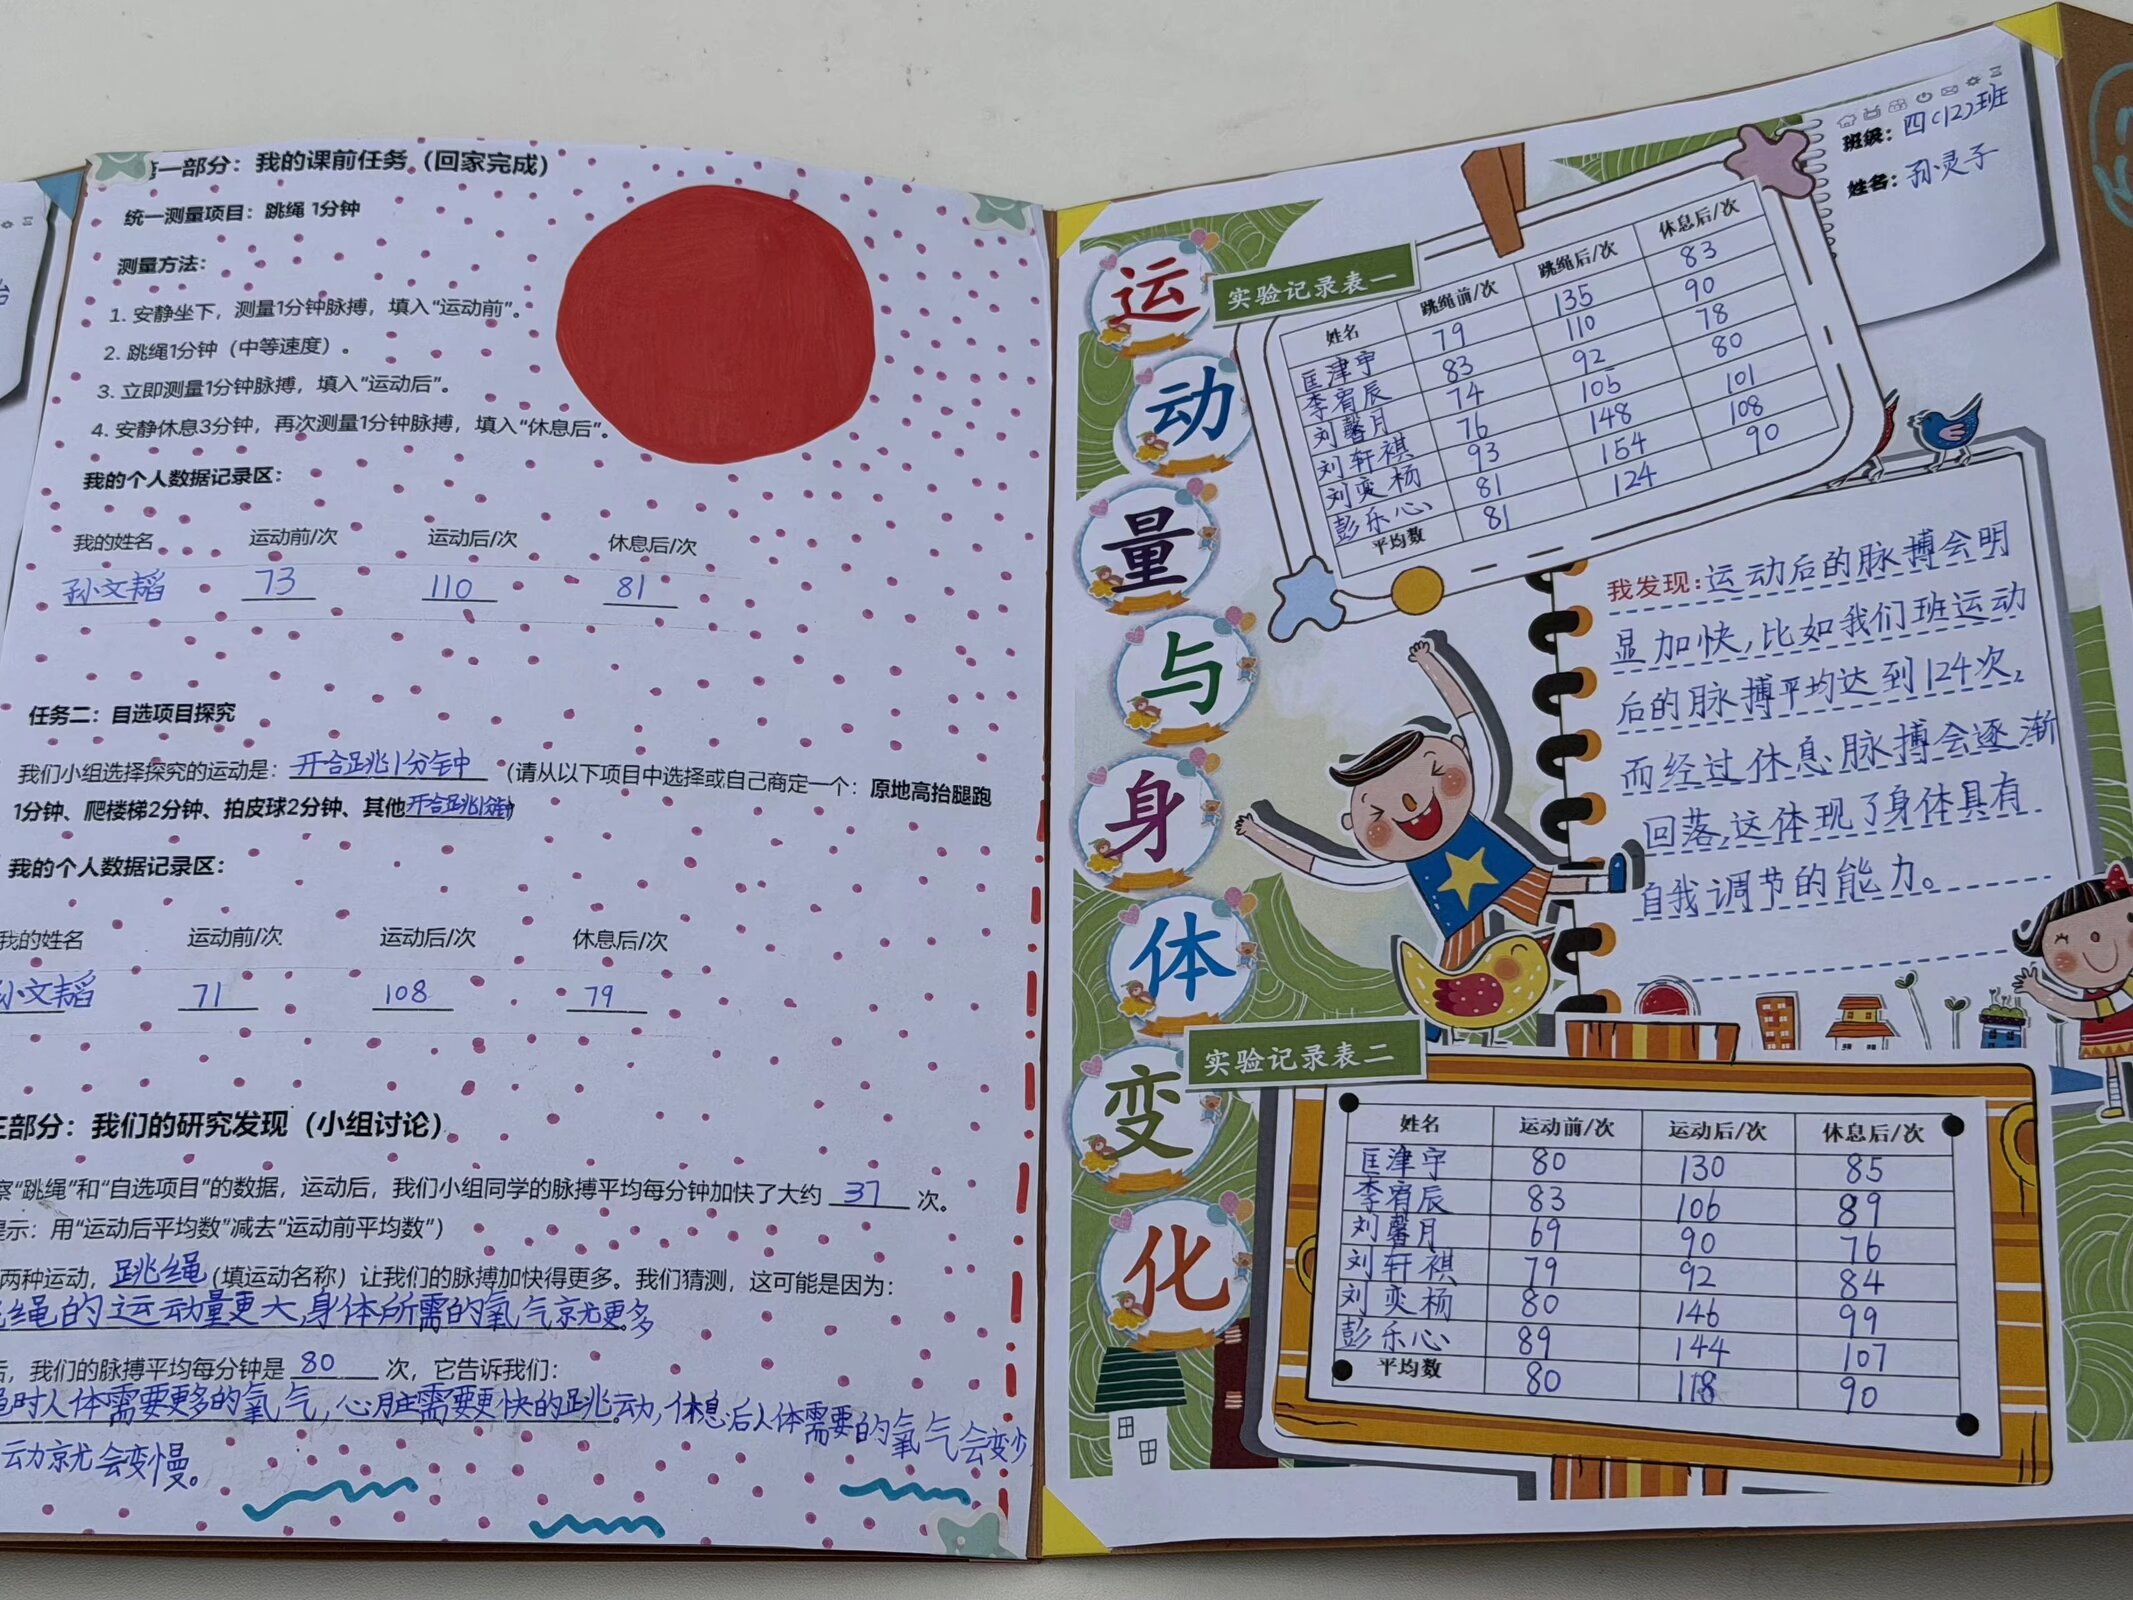 一部分：我的课前任务（回家完成）
统一测量项目：跳绳 1分钟
测量方法：
1. 安静坐下，测量1分钟脉搏，填入“运动前”。
2. 跳绳1分钟（中等速度）。
3. 立即测量1分钟脉搏，填入“运动后”。
4. 安静休息3分钟，再次测量1分钟脉搏，填入“休息后”。
我的个人数据记录区：
我的姓名 运动前/次 运动后/次 休息后/次
孙文韬 73 110 81
任务二：自选项目探究
我们小组选择探究的运动是：开合跳1分钟（请从以下项目中选择或自己商定一个：原地高抬腿跑
1分钟、爬楼梯2分钟、拍皮球2分钟、其他开合跳1分钟
我的个人数据记录区：
我的姓名 运动前/次 运动后/次 休息后/次
孙文韬 71 108 79
三部分：我们的研究发现（小组讨论）
察“跳绳”和“自选项目”的数据，运动后，我们小组同学的脉搏平均每分钟加快了大约 37 次。
提示：用“运动后平均数”减去“运动前平均数”）
两种运动，跳绳（填运动名称）让我们的脉搏加快得更多。我们猜测，这可能是因为：
绳的运动量更大，身体所需的氧气就更多
后，我们的脉搏平均每分钟是 80 次，它告诉我们：
时人体需要更多的氧气，心脏需要更快的跳动，休息后人体需要的氧气会变少
动就会变慢。
班级：四（12）班
姓名：孙灵子
运动量与身体变化
实验记录表一
姓名 跳绳前/次 跳绳后/次 休息后/次
匡津宇 79 135 83
李宥辰 83 110 90
刘馨月 74 92 78
刘轩祺 76 105 80
刘奕杨 93 148 101
彭乐心 81 154 108
平均数 81 124 90
我发现：运动后的脉搏会明
显加快，比如我们班运动
后的脉搏平均达到124次，
而经过休息脉搏会逐渐
回落，这体现了身体具有
自我调节的能力。
实验记录表二
姓名 运动前/次 运动后/次 休息后/次
匡津宇 80 130 85
李宥辰 83 106 89
刘馨月 69 90 76
刘轩祺 79 92 84
刘奕杨 80 146 99
彭乐心 89 144 107
平均数 80 118 90